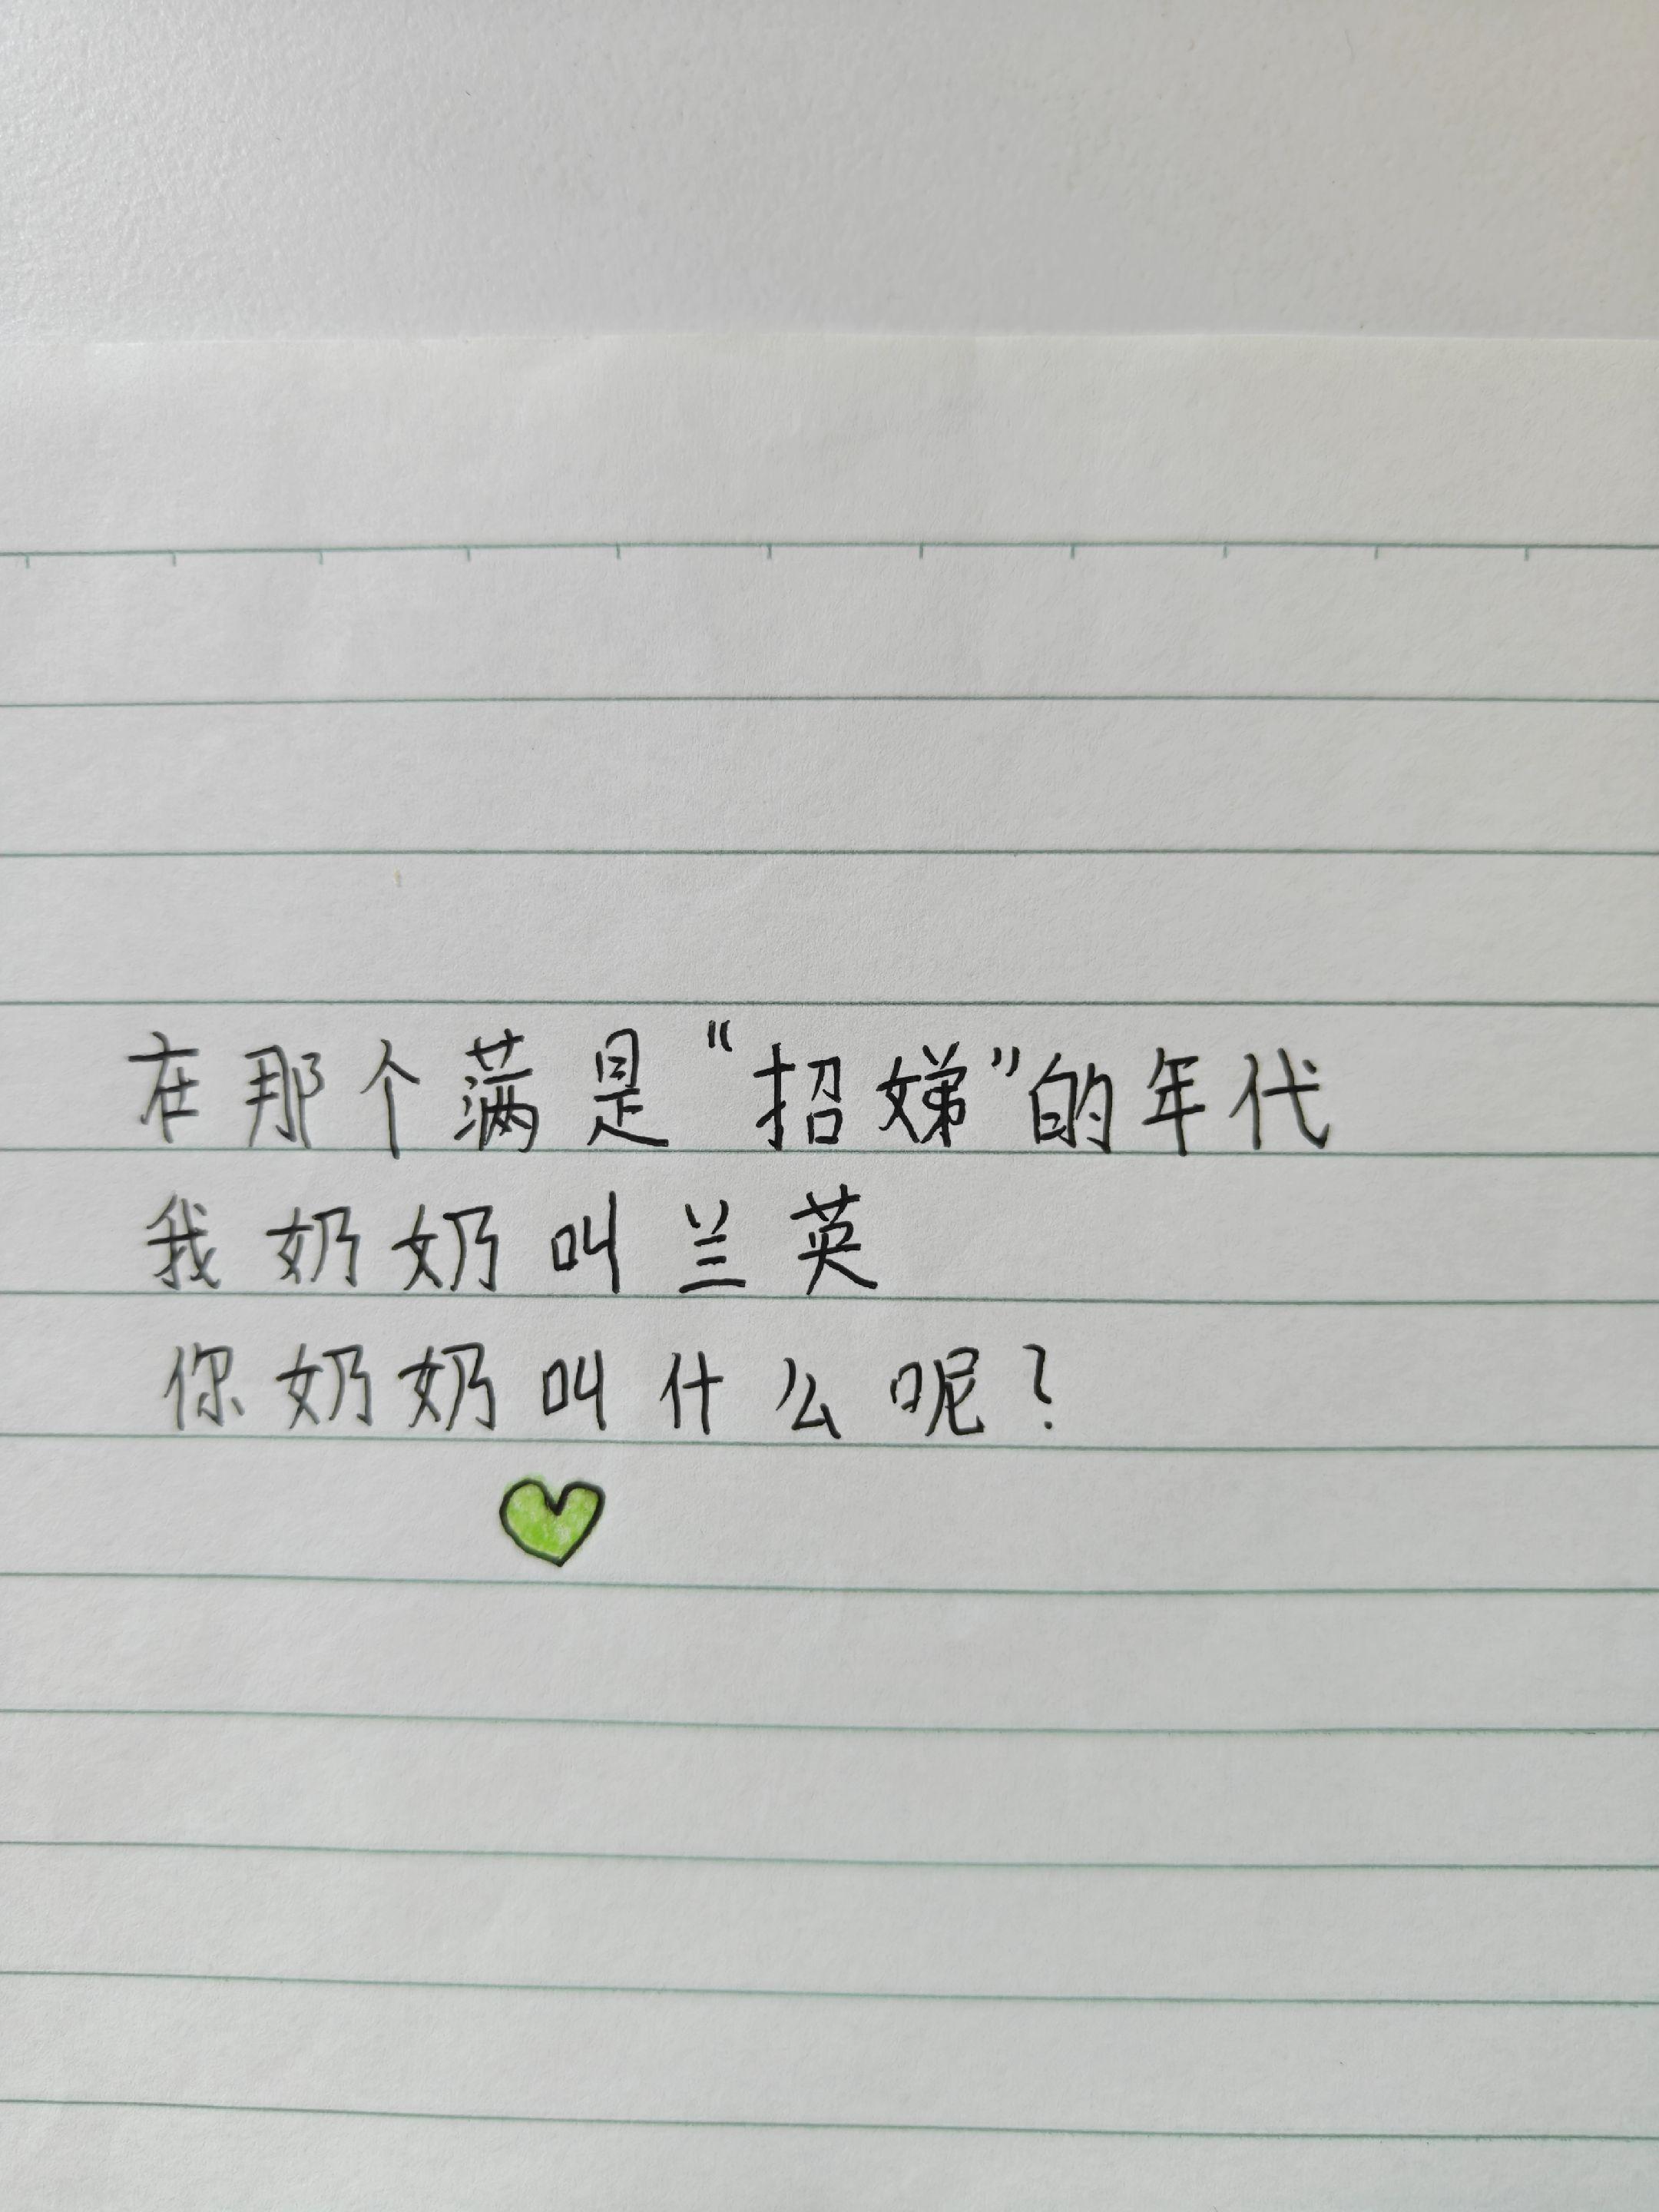 在那个满是“招娣”的年代
我奶奶叫兰英
你奶奶叫什么呢？